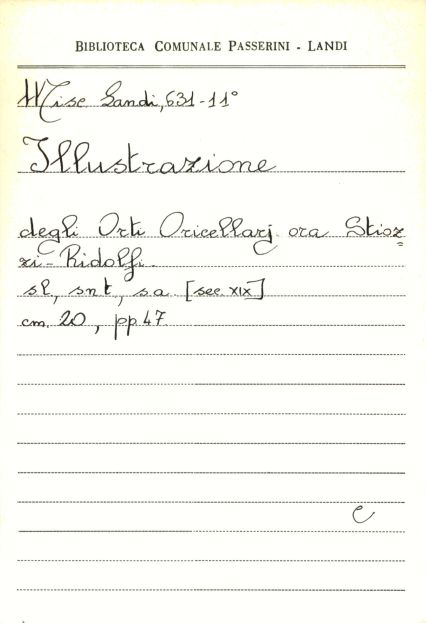 BIBLIOTECA COMUNALE PASSERINI - LANDI
Misc Landi, 631-11°
Illustrazione
degli Orti Oricellarj ora Stioz=
zi-Ridolfi.
sl, snt, sa [sec XIX]
cm. 20, pp 47
c